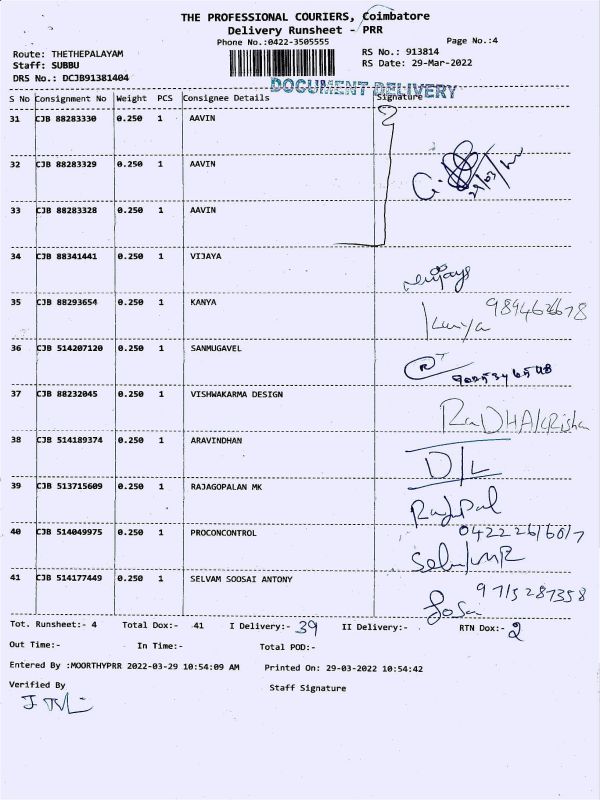 THE PROFESSIONAL COURIERS, Coimbatore
Delivery Runsheet - PRR
Phone No.:0422-3505555
Page No.:4
Route: THETHEPALAYAM
RS No.: 913814
Staff: SUBBU
RS Date: 29-Mar-2022
DRS No.: DCJB91381404
DOCUMENT DELIVERY
S No Consignment No Weight PCS Consignee Details Signature
31 CJB 88283330 0.250 1 AAVIN
32 CJB 88283329 0.250 1 AAVIN
33 CJB 88283328 0.250 1 AAVIN
34 CJB 88341441 0.250 1 VIJAYA
35 CJB 88293654 0.250 1 KANYA
36 CJB 514207120 0.250 1 SANMUGAVEL
37 CJB 88232045 0.250 1 VISHWAKARMA DESIGN
38 CJB 514189374 0.250 1 ARAVINDHAN
D/L
39 CJB 513715609 0.250 1 RAJAGOPALAN MK
40 CJB 514049975 0.250 1 PROCONCONTROL
41 CJB 514177449 0.250 1 SELVAM SOOSAI ANTONY
Tot. Runsheet:- 4 Total Dox:- 41 I Delivery:- 39 II Delivery:- RTN Dox:- 2
Out Time:- In Time:- Total POD:-
Entered By :MOORTHYPRR 2022-03-29 10:54:09 AM Printed On: 29-03-2022 10:54:42
Verified By
Staff Signature